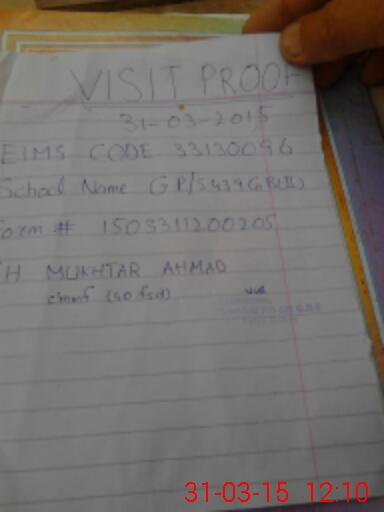 VISIT PROOF
31-03-2015
EIMS CODE 33130096
School Name GP/S 439 GB(II)
Form # 1503311200205
CH MUKHTAR AHMAD
31-03-15 12:10